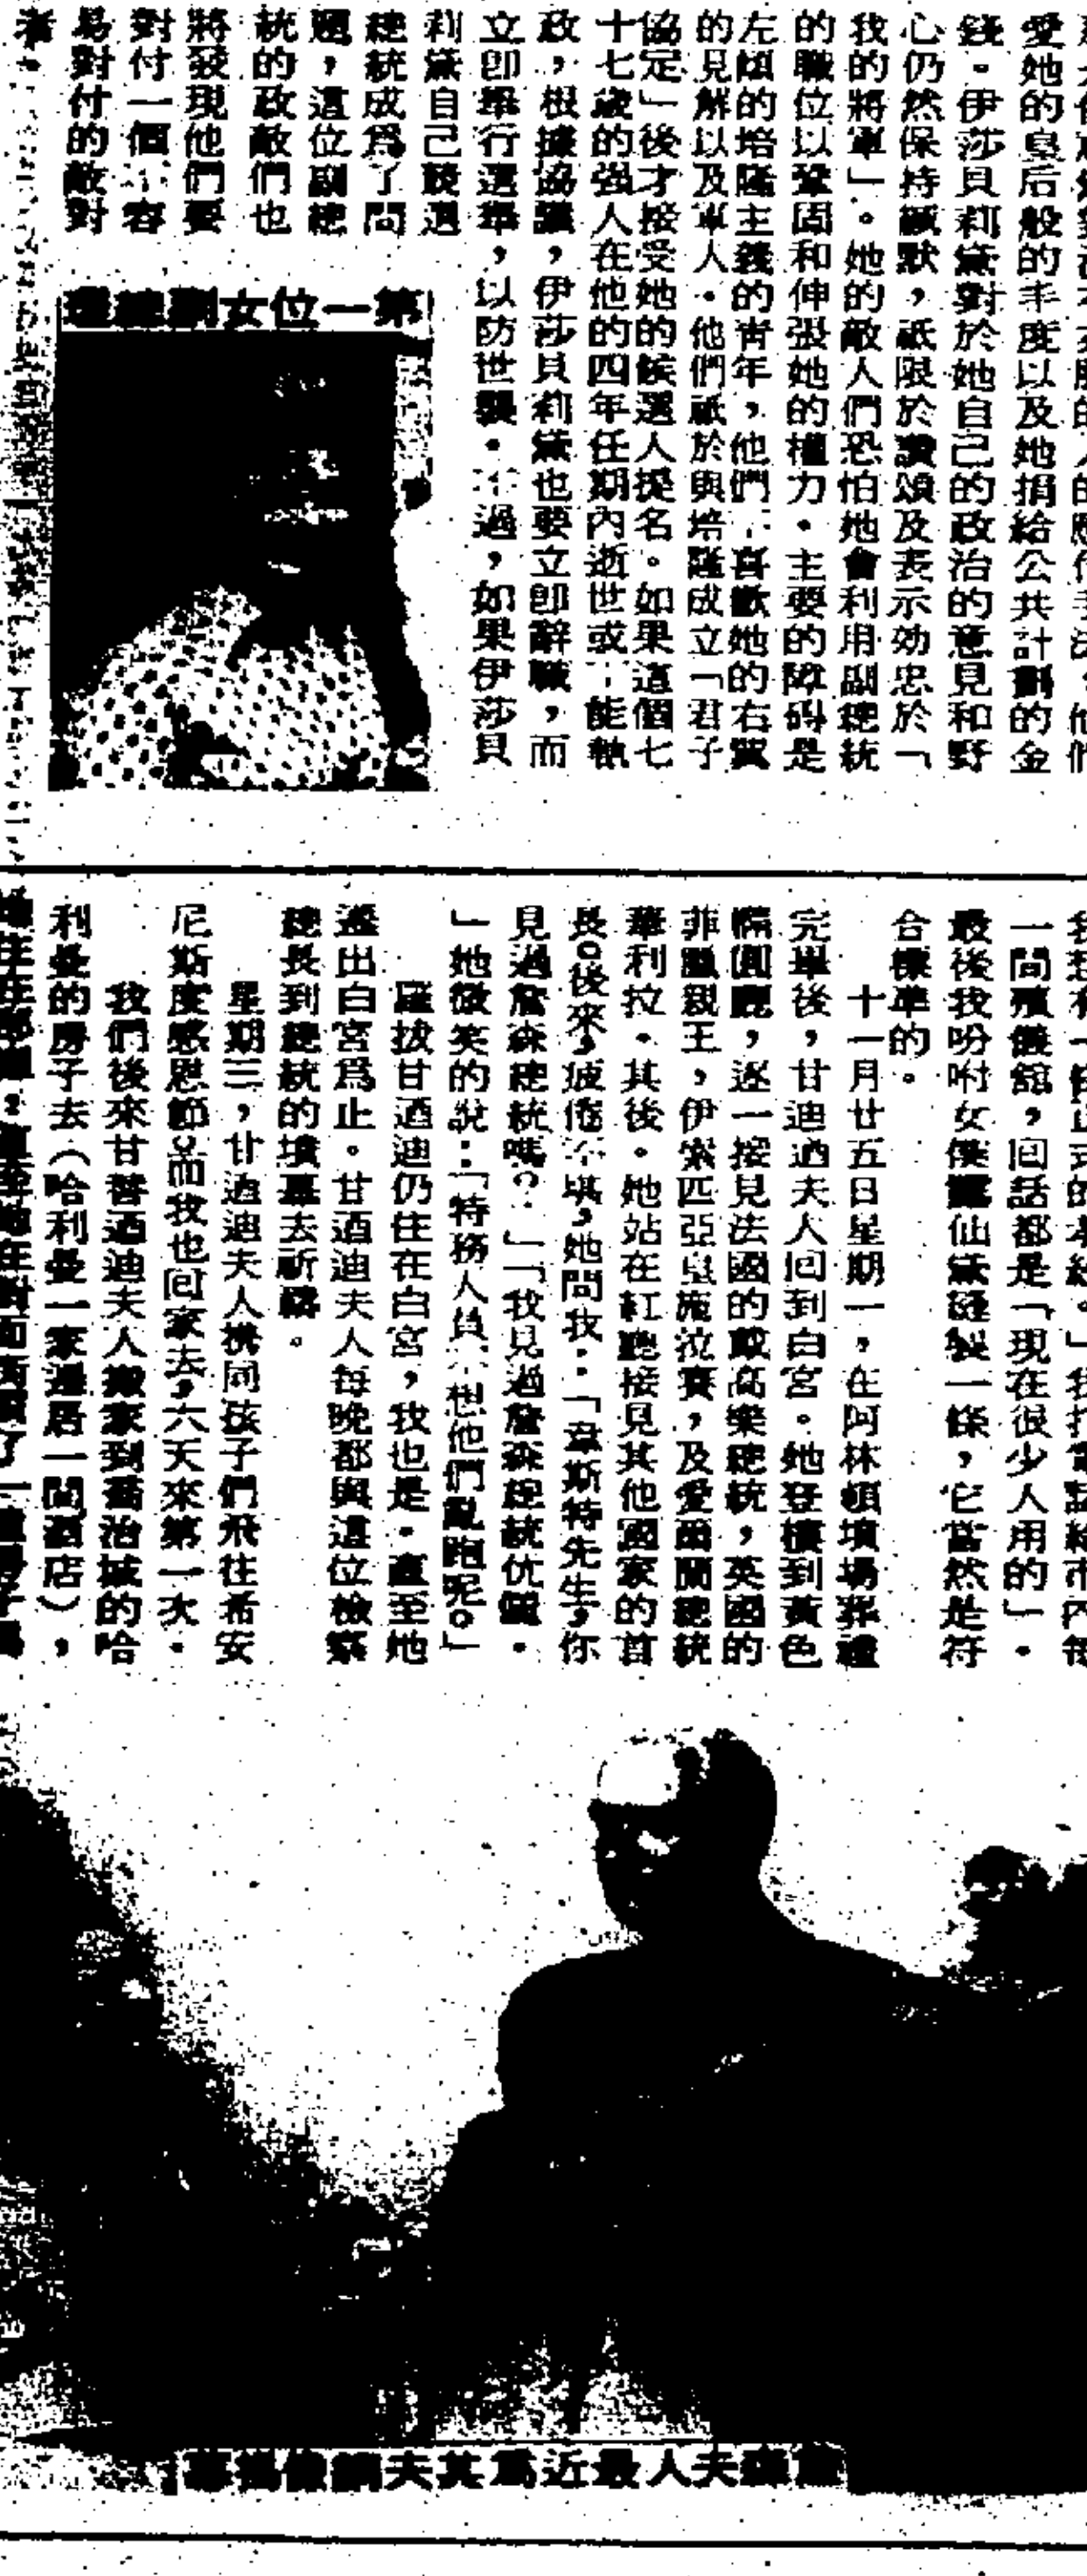 愛她的皇后般的丰度以及她捐給公共計劃的金
錢。伊莎貝莉黛對於她自己的政治的意見和野
心仍然保持緘默，祇限於讚頌及表示効忠於「
我的將軍」。她的敵人們恐怕她會利用副總統
的職位以鞏固和伸張她的權力。主要的障碍是
左傾的培隆主義的青年，他們不喜歡她的右翼
的見解以及軍人。他們祇於與培隆成立「君子
協定」後才接受她的候選人提名。如果這個七
十七歲的强人在他的四年任期內逝世或不能執
政，根據協議，伊莎貝莉黛也要立卽辭職，而
立卽舉行選舉，以防世襲。不過，如果伊莎貝
莉黛自己競選
總統成爲了問
題，這位副總
統的政敵們也
將發現他們要
對付一個不容
易對付的敵對
者。
第一位女副總理
一問殯儀館，回話都是「現在很少人用的」。
最後我吩咐女僕 仙黛縫製一條，它當然是符
合標準的。
十一月廿五日星期一，在阿林頓墳場葬禮
完畢後，甘迪迺夫人回到白宮。她登樓到黃色
橢圓廳，逐一接見法國的戴高樂總統，英國的
菲臘親王，伊索匹亞皇施拉賽，及愛爾蘭總統
華利拉。其後。她站在紅廳接見其他國家的首
長。後來，疲倦不堪，她問我：「韋斯特先生，你
見過詹森總統嗎？」「我見過詹森總統伉儷。
」她微笑的說：「特務人員不想他們亂跑呢。」
羅拔甘迺迪仍住在白宮，我也是。直至她
遷出白宮爲止。甘迺迪夫人每晚都與這位檢察
總長到總統的墳墓去祈禱。
星期三，甘迺迪夫人携同孩子們飛往希安
尼斯度感恩節。而我也回家去，六天來第一次。
我們後來甘替迺迪夫人搬家到喬治城的哈
利曼的房子去（哈利曼一家遷居一間酒店），
詹森夫人最近爲其夫銅像揭幕